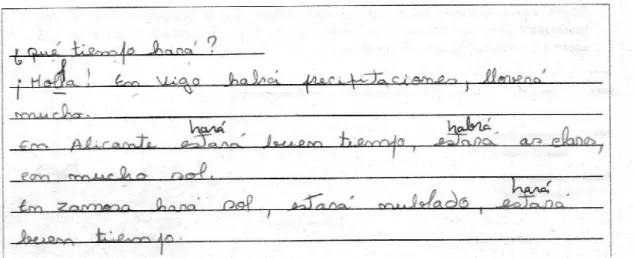 ¿Qué tiempo hará?
¡Hola! En Vigo habrá precipitaciones, lloverá
mucho.
hará habrá
En Alicante estará buen tiempo, estará as claros,
con mucho sol.
hará
En Zamora hará sol, estará nublado, estará
buen tiempo.